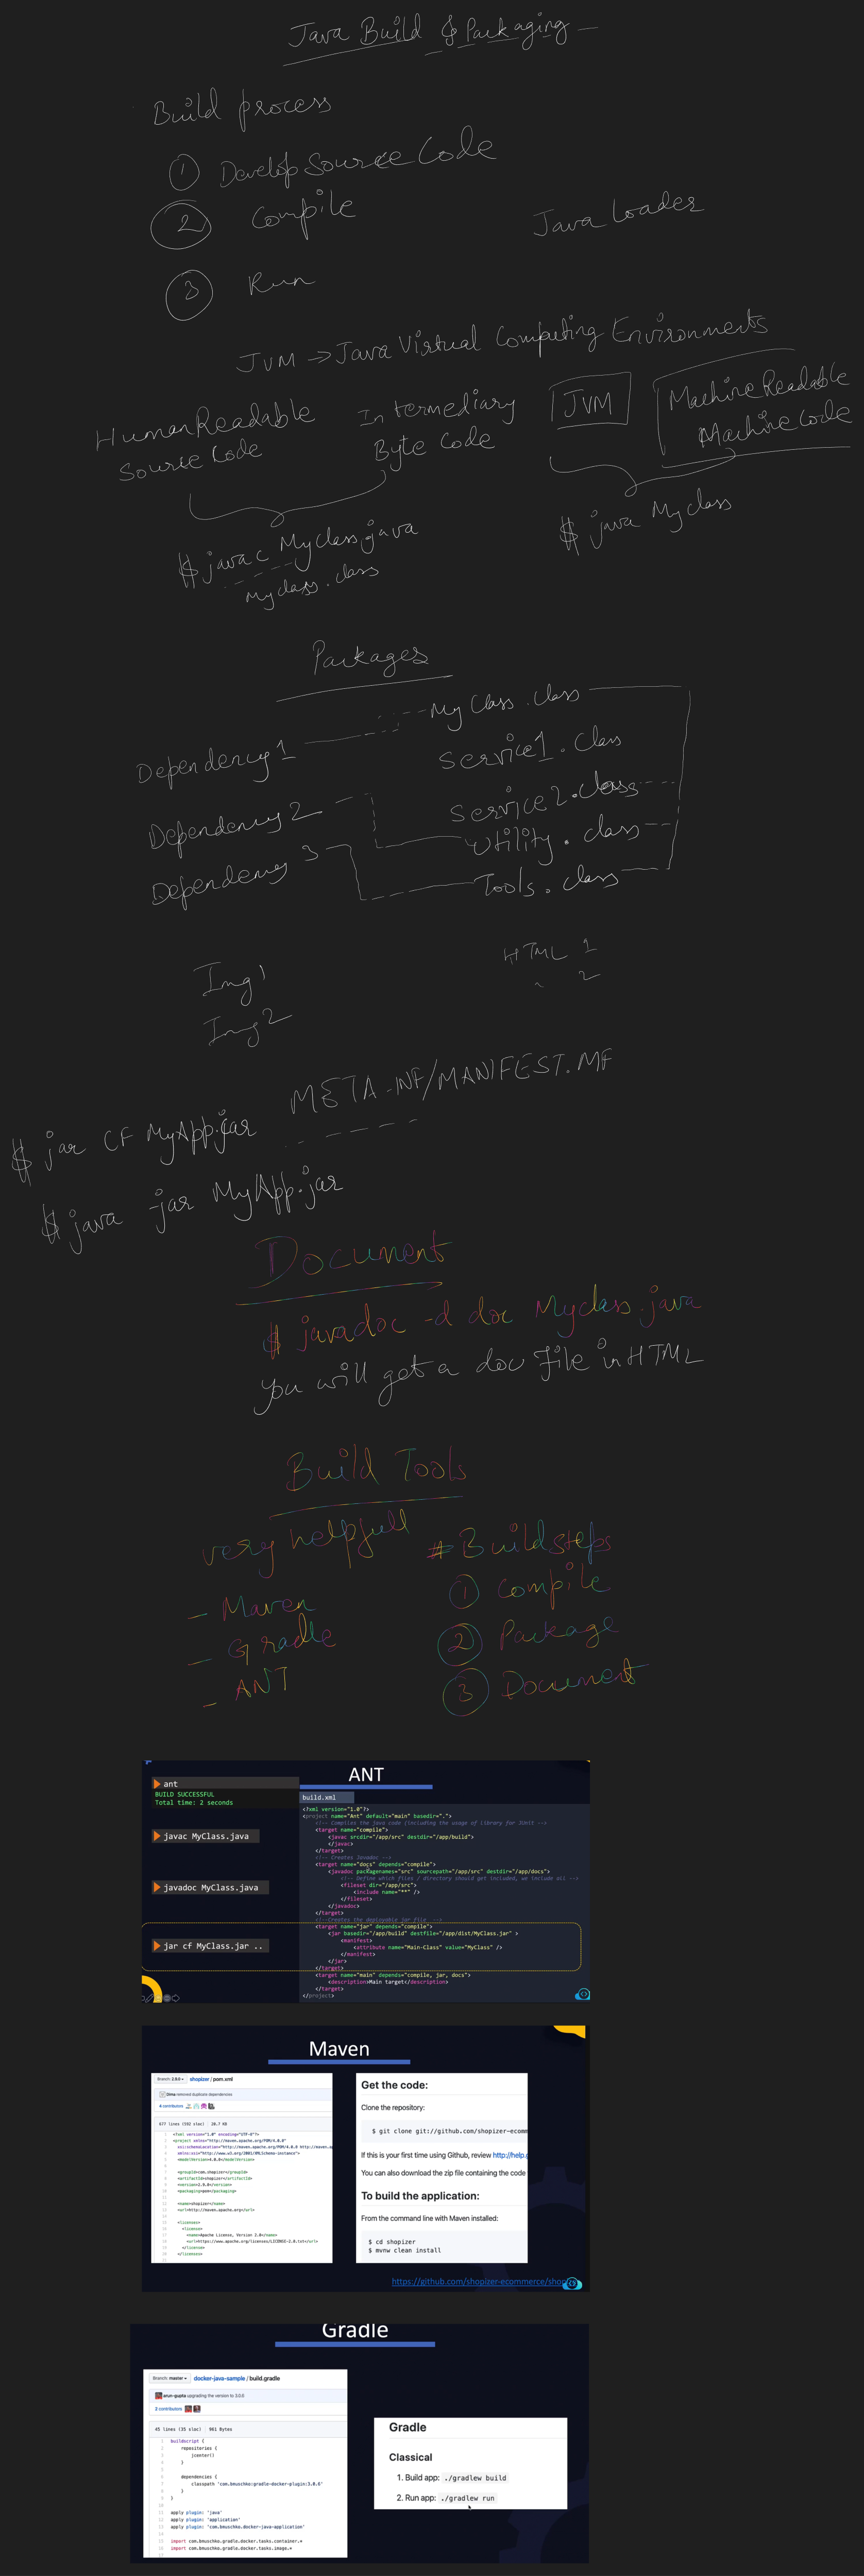 Java Build & Packaging
Build process
1 Develop Source Code
2 Compile
Java Loader
3 Run
JVM -> Java Virtual Computing Environments
Human Readable
Source Code
Intermediary
Byte Code
JVM
Machine Readable
Machine Code
$ javac Myclass.java
Myclass.class
$ java Myclass
Packages
My Class.class
Dependency 1
Service1.class
Dependency 2
Service2.class
Utility.class
Dependency 3
Tools.class
Img 1
HTML 1
Img 2
2
$ jar CF MyApp.jar
META-INF/MANIFEST.MF
$ java -jar MyApp.jar
Document
$ javadoc -d doc Myclass.java
you will get a doc file in HTML
Build Tools
very helpfull
# Build steps
- Maven
1 Compile
- Gradle
2 Package
- ANT
3 Document
ANT
ant
BUILD SUCCESSFUL
Total time: 2 seconds
javac MyClass.java
javadoc MyClass.java
jar cf MyClass.jar ..
build.xml
<?xml version="1.0"?>
<project name="Ant" default="main" basedir=".">
<!-- Compiles the java code (including the usage of library for JUnit -->
<target name="compile">
<javac srcdir="/app/src" destdir="/app/build">
</javac>
</target>
<!-- Creates Javadoc -->
<target name="docs" depends="compile">
<javadoc packagenames="src" sourcepath="/app/src" destdir="/app/docs">
<!-- Define which files / directory should get included, we include all -->
<fileset dir="/app/src">
<include name="**" />
</fileset>
</javadoc>
</target>
<!--Creates the deployable jar file -->
<target name="jar" depends="compile">
<jar basedir="/app/build" destfile="/app/dist/MyClass.jar" >
<manifest>
<attribute name="Main-Class" value="MyClass" />
</manifest>
</jar>
</target>
<target name="main" depends="compile, jar, docs">
<description>Main target</description>
</target>
</project>
Maven
Branch: 2.9.0
shopizer / pom.xml
Dima removed duplicate dependencies
4 contributors
677 lines (592 sloc) 20.7 KB
1 <?xml version="1.0" encoding="UTF-8"?>
2 <project xmlns="http://maven.apache.org/POM/4.0.0"
5 <modelVersion>4.0.0</modelVersion>
7 <groupId>com.shopizer</groupId>
8 <artifactId>shopizer</artifactId>
9 <version>2.9.0</version>
10 <packaging>pom</packaging>
12 <name>shopizer</name>
13 <url>http://maven.apache.org</url>
15 <licenses>
16 <license>
17 <name>Apache License, Version 2.0</name>
18 <url>https://www.apache.org/licenses/LICENSE-2.0.txt</url>
19 </license>
20 </licenses>
Get the code:
Clone the repository:
$ git clone git://github.com/shopizer-ecomm
If this is your first time using Github, review http://help.g
You can also download the zip file containing the code
To build the application:
From the command line with Maven installed:
$ cd shopizer
$ mvnw clean install
https://github.com/shopizer-ecommerce/shop
Gradle
Branch: master
docker-java-sample / build.gradle
arun-gupta upgrading the version to 3.0.6
2 contributors
45 lines (35 sloc) 961 Bytes
1 buildscript {
2 repositories {
3 jcenter()
4 }
5
6 dependencies {
7 classpath 'com.bmuschko:gradle-docker-plugin:3.0.6'
8 }
9 }
10
11 apply plugin: 'java'
12 apply plugin: 'application'
13 apply plugin: 'com.bmuschko.docker-java-application'
14
15 import com.bmuschko.gradle.docker.tasks.container.*
16 import com.bmuschko.gradle.docker.tasks.image.*
Gradle
Classical
1. Build app: ./gradlew build
2. Run app: ./gradlew run